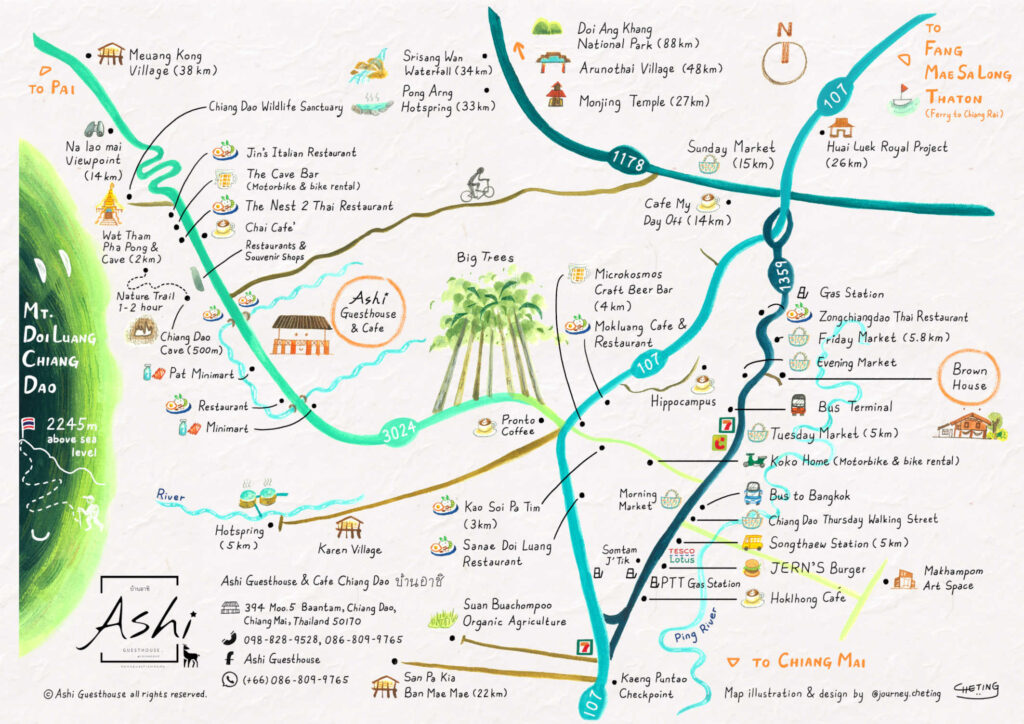 Meuang Kong
Village (38 km)
TO PAI
Srisang Wan
Waterfall (34km)
Pong Arng
Hotspring (33km)
Doi Ang Khang
National Park (88km)
Arunothai Village (48km)
Monjing Temple (27km)
N
TO
FANG
MAE SA LONG
THATON
(Ferry to Chiang Rai)
107
Chiang Dao Wildlife Sanctuary
Na lao mai
Viewpoint
(14km)
Jin's Italian Restaurant
The Cave Bar
(Motorbike & bike rental)
The Nest 2 Thai Restaurant
Chai Cafe'
Restaurants &
Souvenir Shops
1178
Sunday Market
(15km)
Huai Luek Royal Project
(26km)
Cafe My
Day Off (14km)
Wat Tham
Pha Pong &
Cave (2km)
Nature Trail
1-2 hour
Chiang Dao
Cave (500m)
Ashi
Guesthouse
& Cafe
Big Trees
Microkosmos
Craft Beer Bar
(4km)
Mokluang Cafe &
Restaurant
1359
Gas Station
Zongchiangdao Thai Restaurant
Friday Market (5.8km)
Evening Market
Brown
House
MT.
DOI LUANG
CHIANG
DAO
2245m
above sea
level
Pat Minimart
Restaurant
Minimart
3024
107
Hippocampus
7
Bus Terminal
Tuesday Market (5km)
Koko Home (Motorbike & bike rental)
Pronto
Coffee
River
Hotspring
(5km)
Karen Village
Kao Soi Pa Tim
(3km)
Sanae Doi Luang
Restaurant
Morning
Market
Bus to Bangkok
Chiang Dao Thursday Walking Street
Somtam
J'Tik
TESCO
Lotus
Songthaew Station (5km)
PTT Gas Station
JERN'S Burger
Hoklhong Cafe
Makhampom
Art Space
Ping River
บ้านอาชิ
Ashi
GUESTHOUSE
Ashi Guesthouse & Cafe Chiang Dao บ้านอาชิ
394 Moo.5 Baantam, Chiang Dao,
Chiang Mai, Thailand 50170
098-828-9528, 086-809-9765
Ashi Guesthouse
(+66) 086-809-9765
Suan Buachompoo
Organic Agriculture
San Pa Kia
Ban Mae Mae (22km)
7
107
Kaeng Puntao
Checkpoint
TO CHIANG MAI
© Ashi Guesthouse all rights reserved.
Map illustration & design by @journey.cheting
CHETING